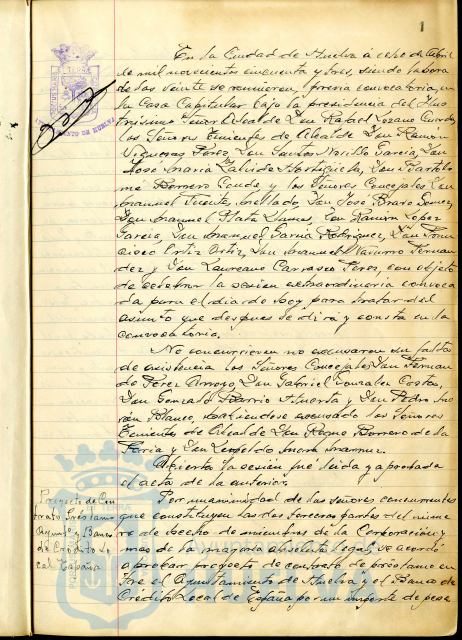 1
En la Ciudad de Huelva á ocho de Abril
de mil novecientos cincuenta y tres, siendo la hora
de las veinte se reunieron, previa convocatoria, en
la Casa Capitular bajo la presidencia del Ilus
trísimo Señor Alcalde Don Rafael Lozano Cuerda,
los Señores Tenientes de Alcalde Don Ramón
Vigueras Pérez, Don Santos Morillo García, Don
José María Hortigüela, Don Bartolo
mé Borrero Conde, y los Señores Concejales Don
Manuel Fuente Mellado, Don José Bravo Gomez,
Don Manuel Plata Llamas, Don Ramón López
García, Don Manuel García Rodriguez, Don Fran
cisco Ortiz Ortiz, Don Manuel Navarro Fernan
dez y Don Laureano Carrasco Pérez, con objeto
de celebrar la sesión extraordinaria convoca
da para el dia de hoy para tratar del
asunto que despues se dirá y consta en la
convocatoria.
No concurrieron ni excusaron su falta
de asistencia los Señores Concejales Don Hernan
do Pérez Arroyo, Don Gabriel González Costas,
Don Gonzalo Barrio Huerta y Don Pedro Mo
rán Blanco, habiéndose excusado los Señores
Tenientes de Alcalde Don Roque Borrero de la
Feria y Don Leopoldo Mora
Abierta la sesión fué leida y aprobada
el acta de la anterior.
Proyecto de Con
trato Préstamo
Ayunto y Banco
de Crédito Lo
cal España
Por unanimidad de los señores concurrentes
que constituyen las dos terceras partes del nume
ro de hecho de miembros de la Corporación y
mas de la mayoría absoluta legal, se acordó
aprobar proyecto de contrato de préstamo en
tre el Ayuntamiento de Huelva y el Banco de
Crédito Local de España por un importe de pese